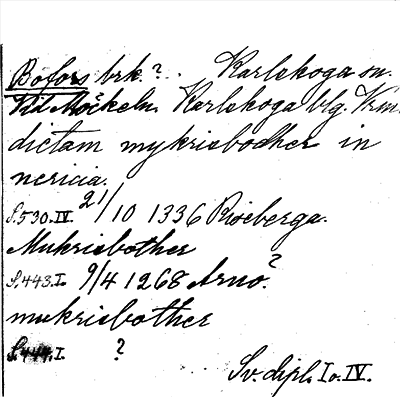 Bofors brk.? Karlskoga sn.
Vid Möckeln. Karlskoga blg. Vrm.
dictam mykrisbodher in
nericia.
S.530.IV. 21/10 1336 Riseberga.
Mukrisbother
S.443.I. 9/4 1268 Arnö?
mukrisbother
S.444.I. ?
Sv. dipl. I o. IV.